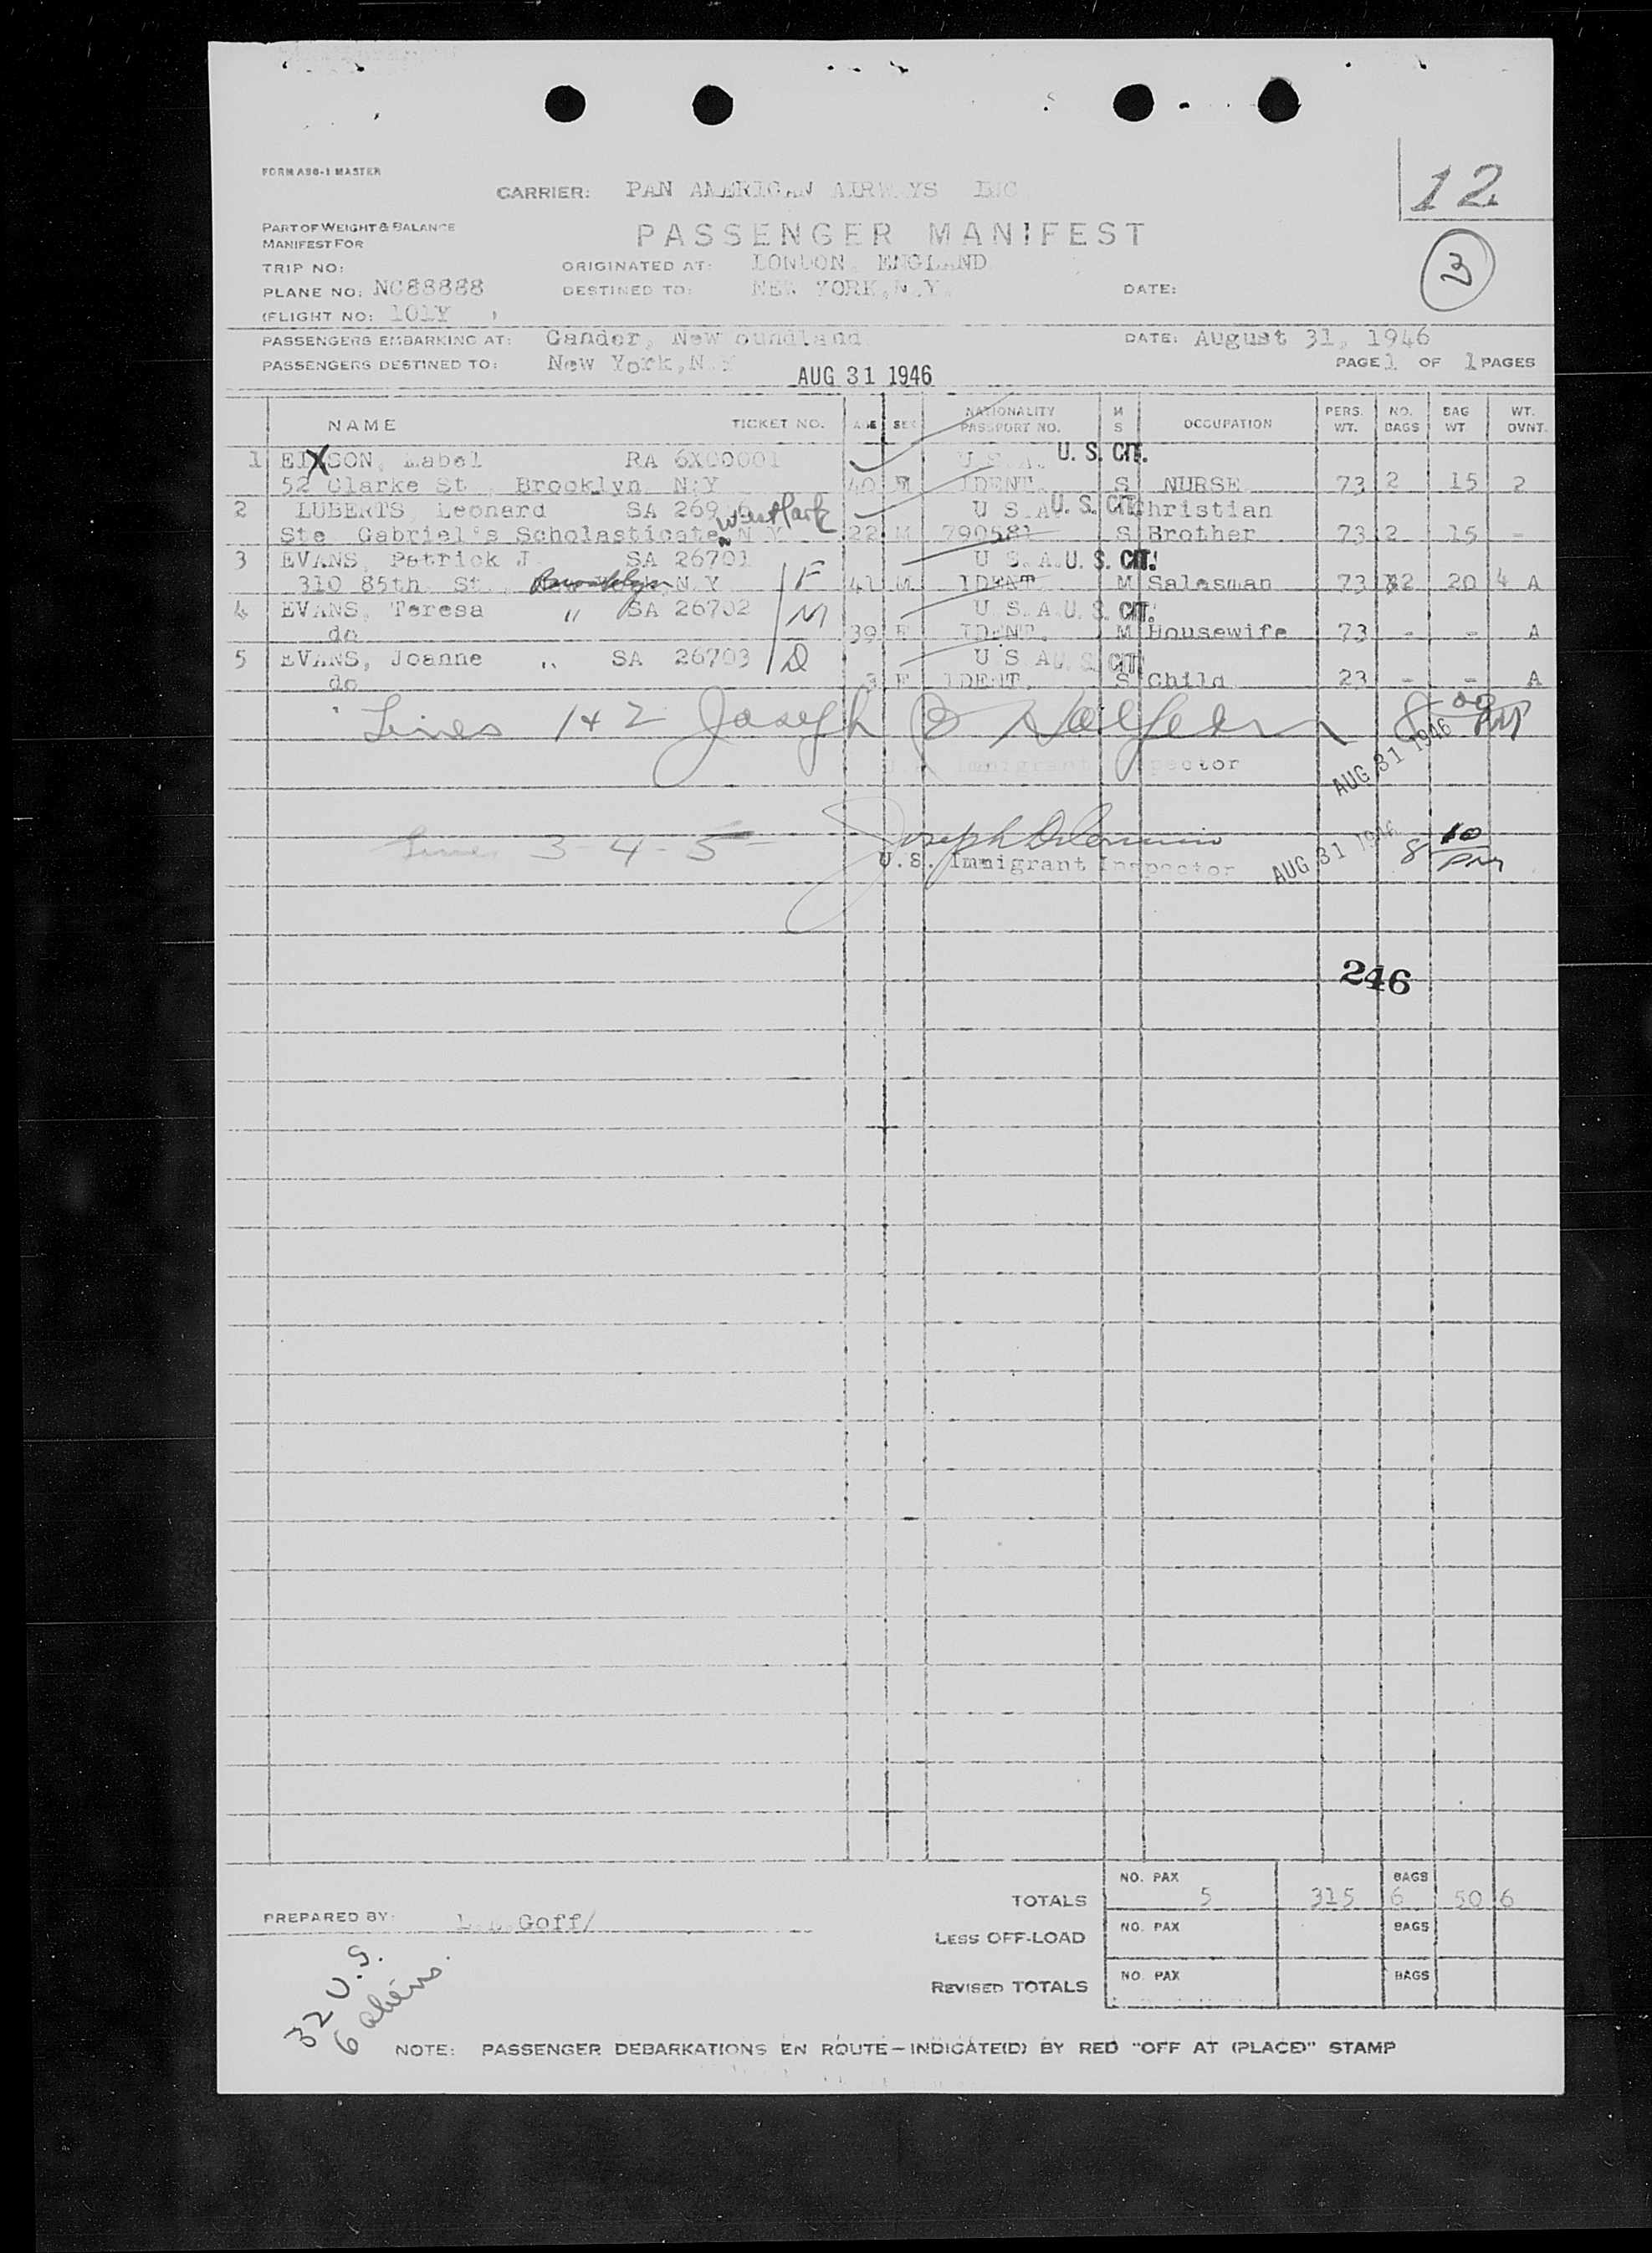 FORM A90-1 MASTER
12
CARRIER: PAN AMERICAN AIRWAYS INC
PART OF WEIGHT & BALANCE
MANIFEST FOR
PASSENGER MANIFEST
3
TRIP NO:
ORIGINATED AT: LONDON, ENGLAND
PLANE NO: NC88888
DESTINED TO: NEW YORK, N.Y.
DATE:
(FLIGHT NO: 101Y )
PASSENGERS EMBARKING AT: Gander, Newfoundland
DATE: August 31, 1946
PASSENGERS DESTINED TO: New York, N.Y
AUG 31 1946
PAGE 1 OF 1 PAGES
NAME TICKET NO. AGE SEX NATIONALITY PASSPORT NO. M S OCCUPATION PERS. WT. NO. BAGS BAG WT WT. OVNT.
1 EIXSON, Mabel RA 6X00001 U.S.A. U. S. CIT.
52 Clarke St., Brooklyn N.Y 40 F IDENT. S NURSE 73 2 15 2
2 LUBERTS, Leonard SA U S A U. S. CIT. Christian
Ste Gabriel's Scholasticate West Park N Y 22 M 790581 S Brother 73 2 15 -
3 EVANS, Patrick J. SA 26701 F U S.A. U. S. CIT.
310 85th. St., Brooklyn N.Y 41 M IDENT M Salesman 73 2 20 4 A
4 EVANS, Teresa " SA 26702 M U S.A. U. S. CIT.
do 39 F IDENT. M Housewife 73 - - A
5 EVANS, Joanne " SA 26703 D U S A U. S. CIT
do 3 F IDENT. S Child 23 - - A
Lines 1 & 2 Joseph 8 00 PM
Immigrant Inspector
AUG 31 1946
Lines 3-4-5 Joseph
U.S. Immigrant Inspector
AUG 31 1946
8 10 PM
246
NO. PAX BAGS
TOTALS 5 315 6 50 6
PREPARED BY: Goff/
NO. PAX BAGS
LESS OFF-LOAD
NO. PAX BAGS
REVISED TOTALS
32 U.S.
6 aliens.
NOTE: PASSENGER DEBARKATIONS EN ROUTE—INDICATE(D) BY RED "OFF AT (PLACE)" STAMP